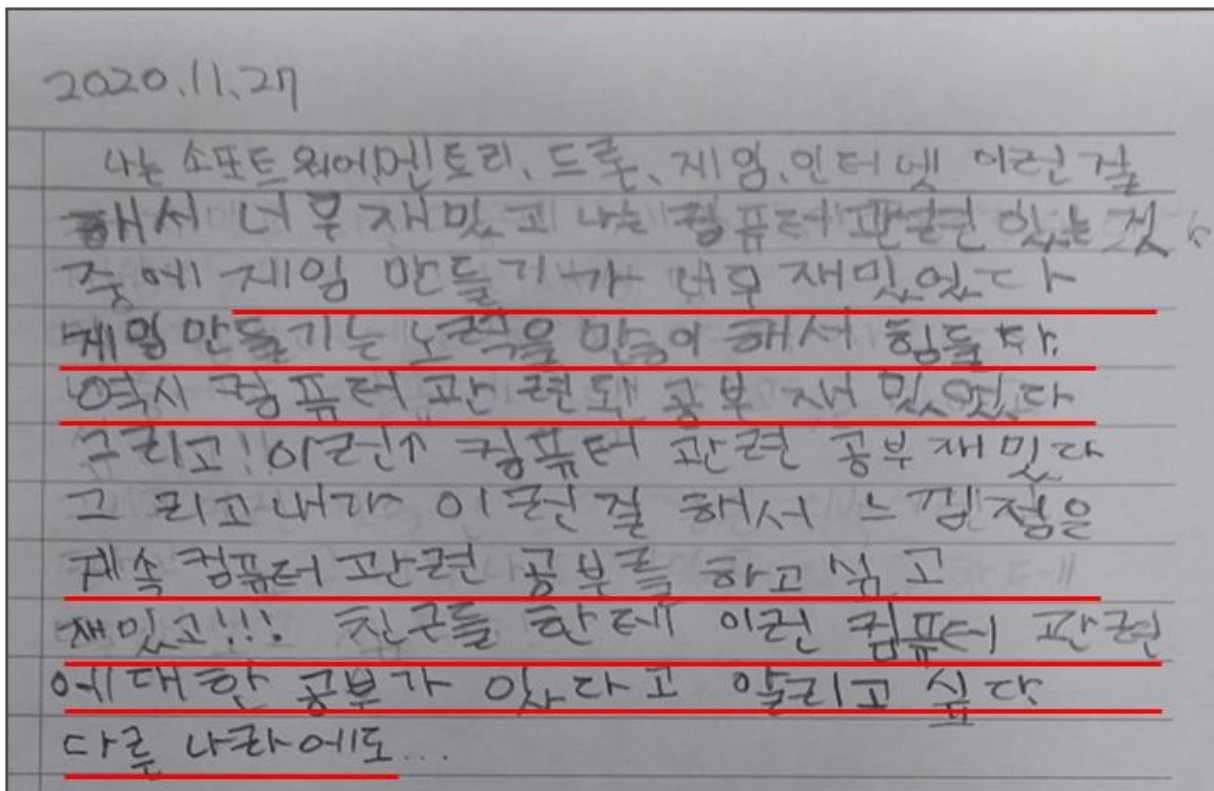 2020.11.27
나는 소포트웨어,멘토리, 드론, 게임, 인터넷 이런걸
해서 너무 재밌고 나는 컴퓨터 관련 있는 것
중에 게임 만들기가 너무 재밌었다
게임 만들기는 노력을 만이 해서 힘들다.
역시 컴퓨터 관련된 공부 재밌었다
그리고! 이런↑ 컴퓨터 관련 공부재밌다
그리고내가 이런걸 해서 느낌점은
계속 컴퓨터 관련 공부를 하고 싶고
재밌고!!! 친구들 한테 이런 컴퓨터 관련
에대한 공부가 있다고 알리고 싶다
다른 나라에도...